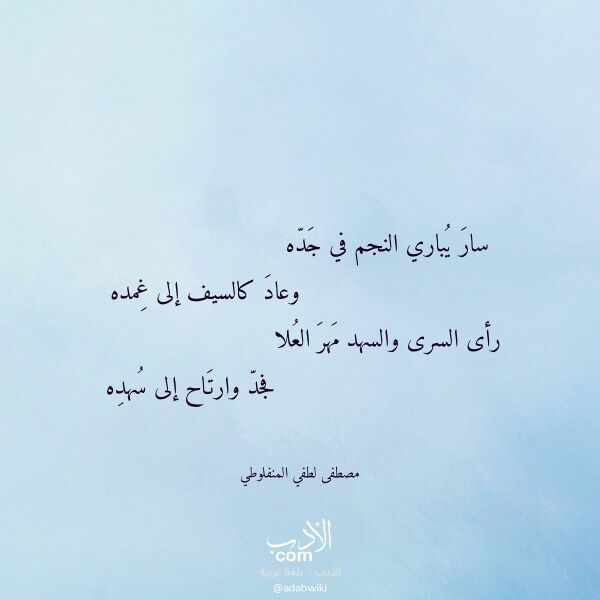 سارَ يُباري النجم في جَدّه
وعادَ كالسيف إلى غِمده
رأى السرى والسهد مَهرَ العُلا
فجدّ وارتَاح إلى سُهدِه
مصطفى لطفي المنفلوطي
الأدب
com
الأدب .. بلغة عربية
@adabwiki